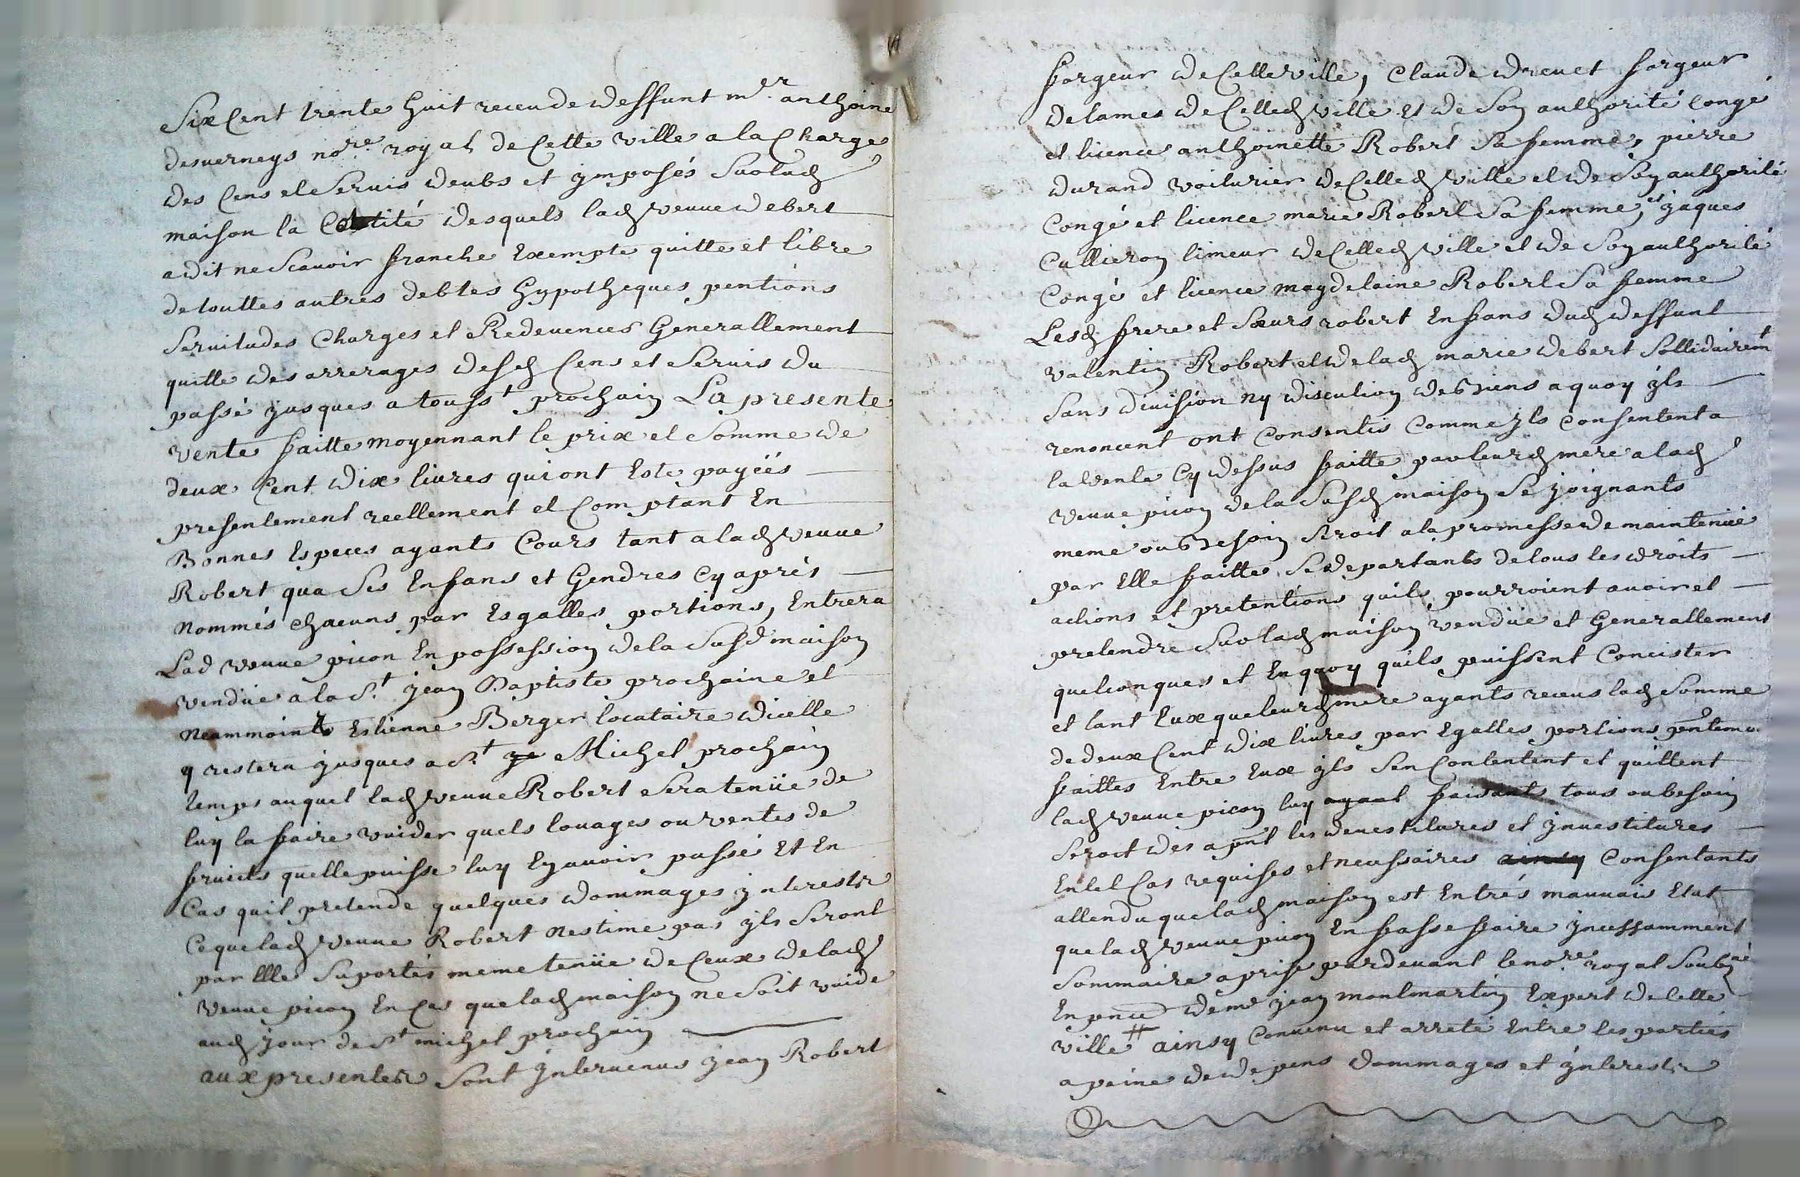 Six Cent trente huit receu de deffunt me.r anthoine
desverneys no.re royal de Cette ville a la Charge
des Cens et Servis deubs et ymposés Sur lad
maison la Cottité desquels lad veuve debert
a dit ne Scavoir franche Exempte quitte et libre
de touttes autres debtes hypotheques pentions
Servitudes Charges et Redevences Generallement
quitte des arrerages desd Cens et Servis du
passé jusques a touss.t prochain La presente
vente faitte moyennant le prix et Somme de
deux Cent dix livres qui ont Esté payéés
presentement reellement et Comptant En
Bonnes Especes ayants Cours tant a lad veuve
Robert qua Ses Enfans et Gendres Cy aprés
nommés chacuns par Esgalles portions, Entrera
Lad veuve picon En possession de la Susd maison
vendüe a la S.t jean Baptiste prochaine et
neammoints Estienne Berger locataire dicelle
y restera jusques a S.t Michel prochain
temps auquel lad veuve Robert Sera tenüe de
luy la faire vuider quels louages ou ventes de
fruicts quelle puisse luy En avoir passé Et En
Cas quil pretende quelques dommages ynterests
Ce que lad veuve Robert nestime pas yls Seront
par Elle Suportés meme tenüe de Ceux de lad
veuve picon En Cas que lad maison ne Soit vuide
aud jour de S.t michel prochain
aux presentes Sont yntervenus jean Robert
forgeur de Celle ville, Claude drevet forgeur
de lames de Celled ville Et de Son authorité Congé
et licence anthoinette Robert Sa femme, pierre
durand voiturier de Celled ville et de Son authorité
Congé et licence marie Robert Sa femme, et jaques
Cullieron limeur de Celled ville et de Son authorité
Congé et licence magdelaine Robert Sa femme
Lesd frere et Sœurs robert Enfans dud deffunt
valentin Robert et de lad marie debert Sollidairem.t
Sans division ny discution de Biens a quoy yls
renoncent ont Consentis Comme yls Consentent a
la vente Cy dessus faitte par leurd mere a lad
veuve picon de la Susd maison Se joignants
meme ou Besoin Seroit a la promesse de maintenüe
par Elle faitte Se departants de tous les droits
actions et pretentions quils pourroient avoir et
pretendre Sur lad maison vendüe et Generallement
quelconques et En quoy quils puissent Concister
et tant Eux que leurd mere ayants receus lad Somme
de deux Cent dix livres par Egalles portions
faittes Entre Eux yls Sen Contentent et quittent
lad veuve picon luy faisants tous ou besoin
Seroit des a pnt les devestitures et ynvestitures
En tel Cas requises et necessaires Consentants
attendu que lad maison est En trés mauvais Etat
que lad veuve picon En fasse faire yncessamment
Sommaire aprise pardevant le no.re royal Soubné
En pnce de me jean montmartin Expert de Cette
ville # ainsy Convenu et arreté Entre les parties
a peine de depens dommages et ynterests